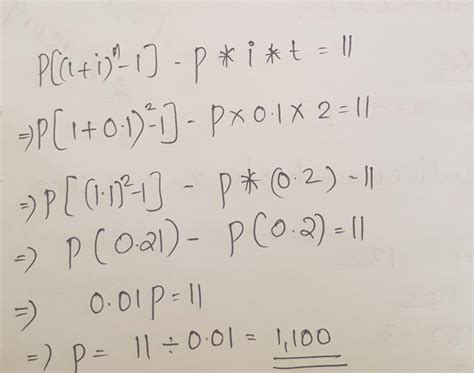 P[(1+i)^n-1] - P * i * t = 11
=> P[1+0.1)^2-1] - P x 0.1 x 2 = 11
=> P[(1.1)^2-1] - P * (0.2) - 11
=> P(0.21) - P(0.2) = 11
=> 0.01P = 11
=> P = 11 ÷ 0.01 = 1,100